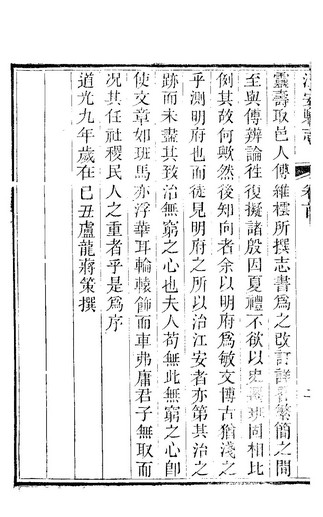 江安縣志 卷首
靈壽取邑人傅維橒所撰志書爲之改訂詳畧繁簡之間
至與傅辨論往復擬諸殷因夏禮不欲以史遷班固相比
例其故何歟然後知向者余以明府爲敏文博古猶淺之
乎測明府也而徒見明府之所以治江安者亦第其治之
跡而未盡其致治無窮之心也夫人苟無此無窮之心卽
使文章如班馬亦浮華耳輪轅飾而車弗庸君子無取而
况其任社稷民人之重者乎是爲序
道光九年歲在己丑盧龍蔣策撰